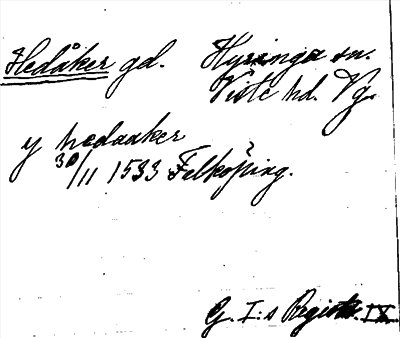 Hedåker gd. Hyringa sn.
Viste hd. Vg.
y hedaaker
30/11 1533 Felköping.
G. I:s Registr. IX